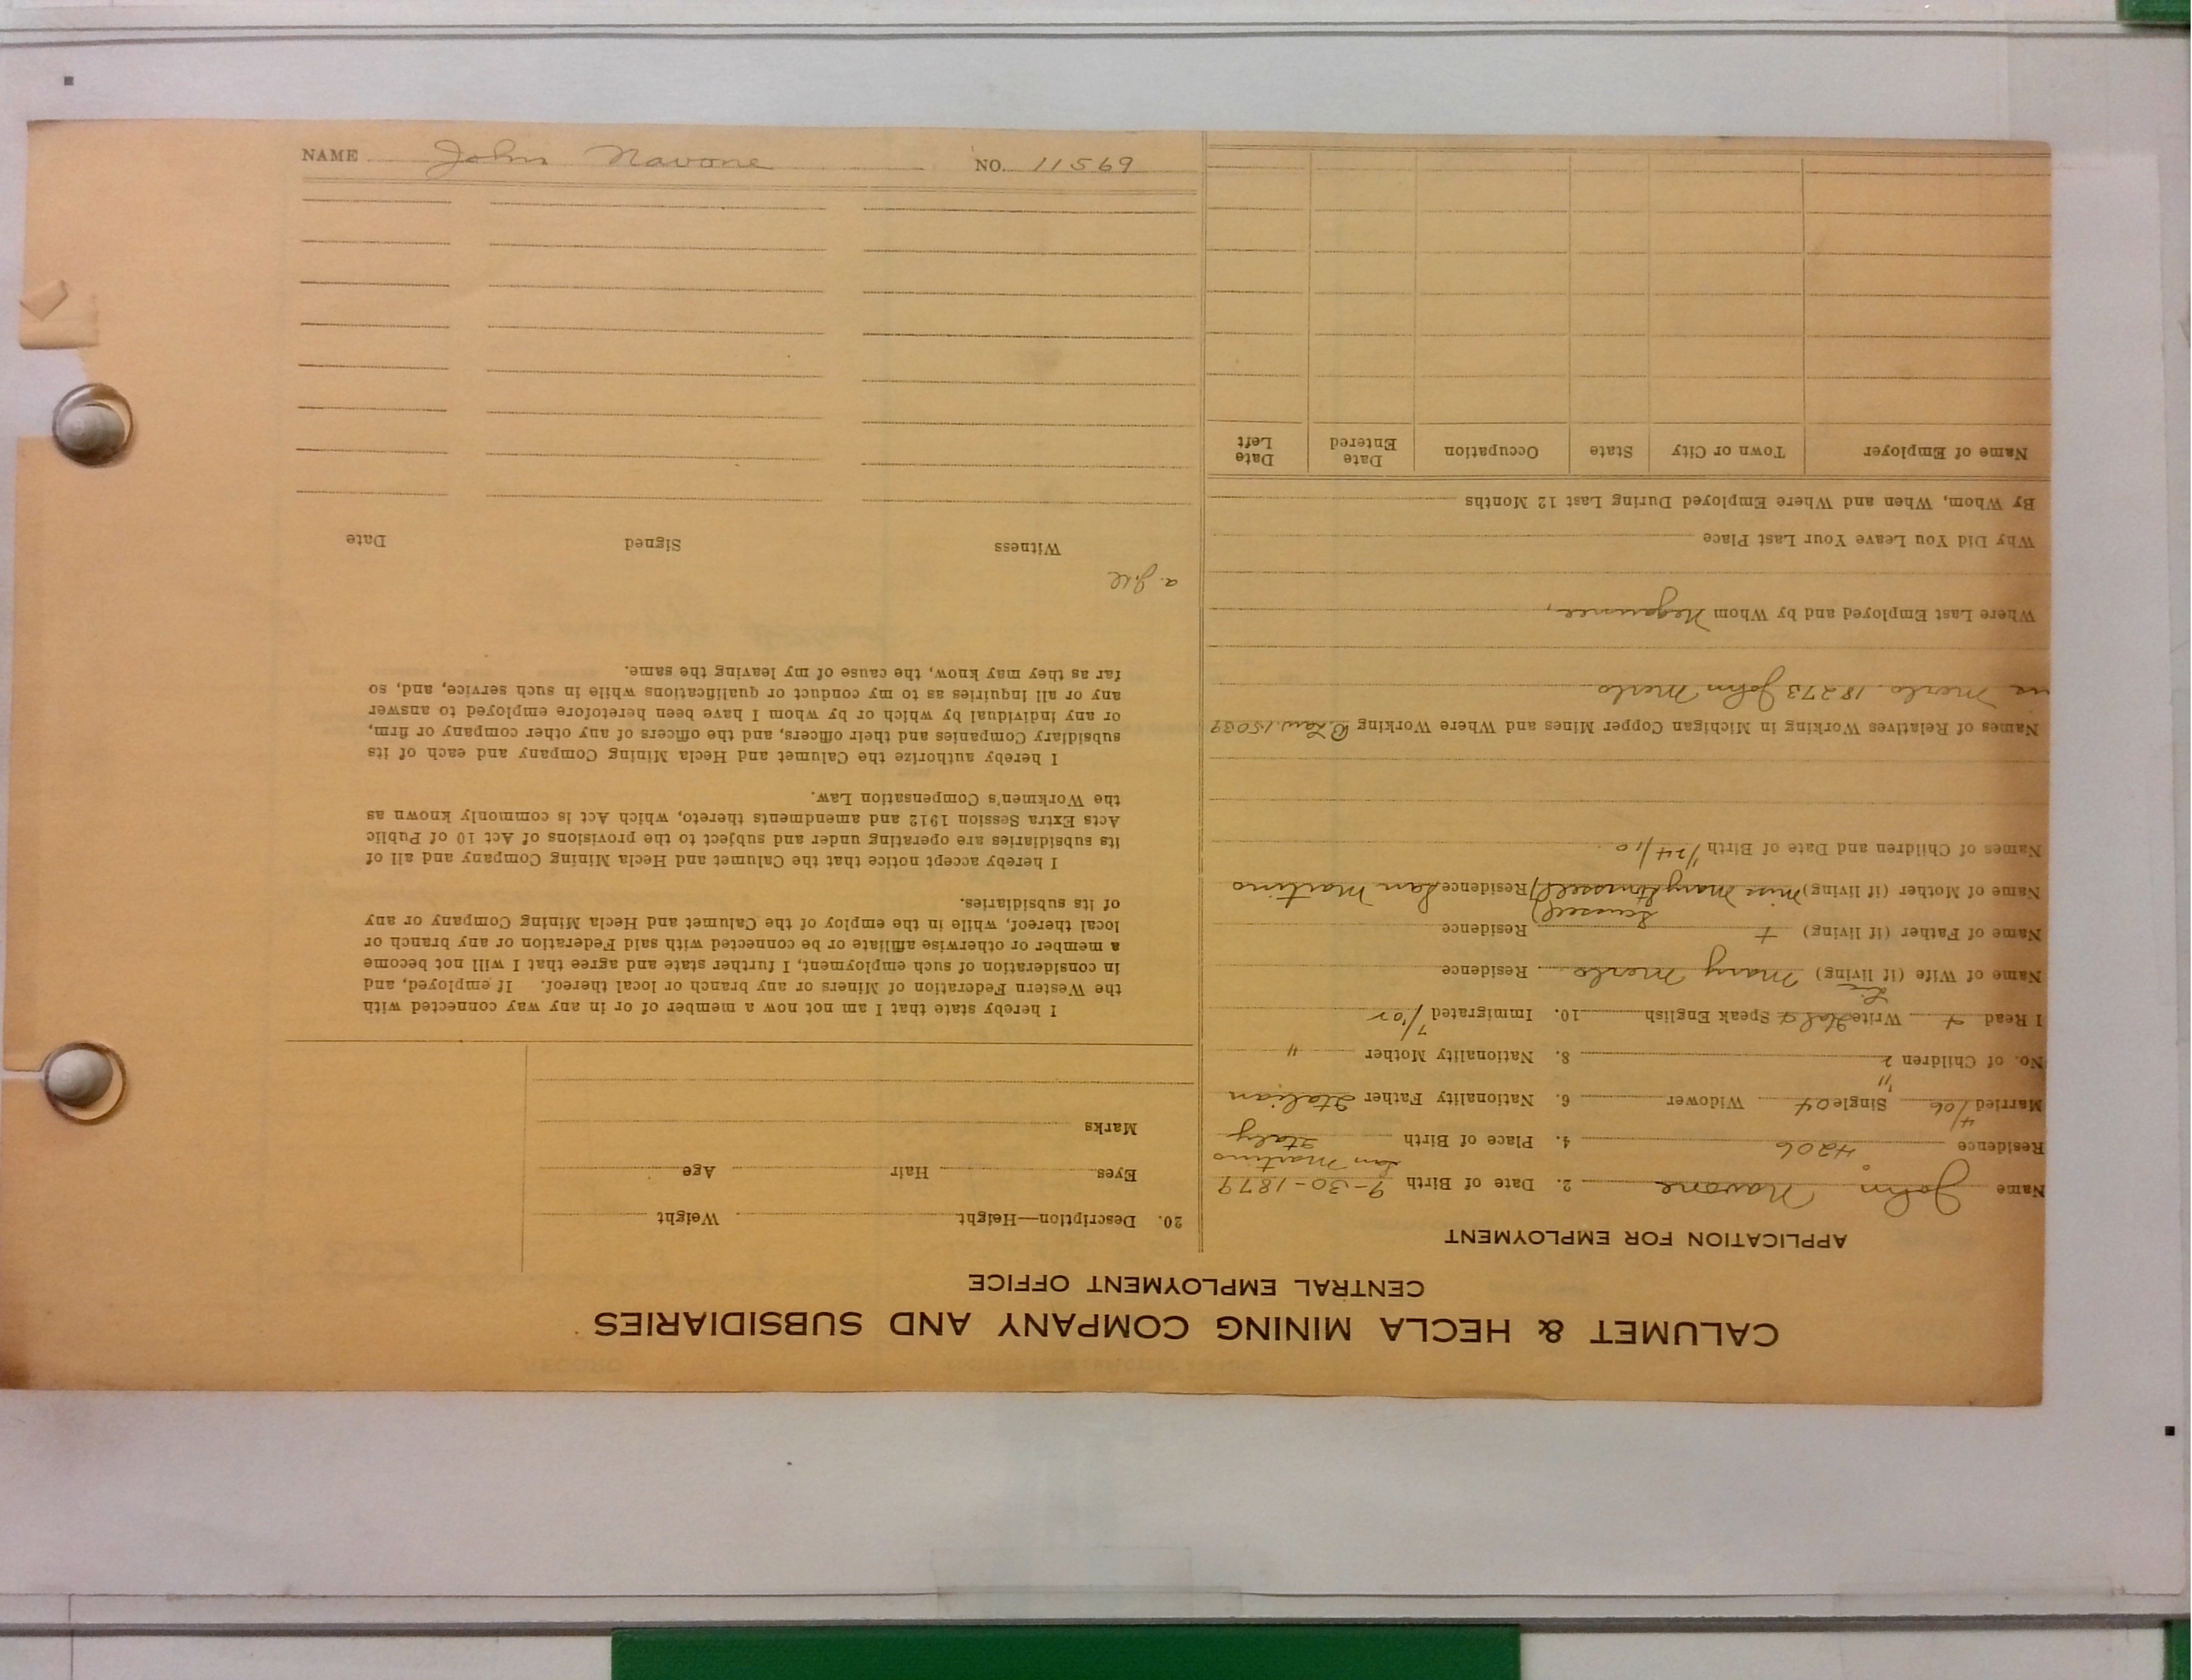 CALUMET & HECLA MINING COMPANY AND SUBSIDIARIES
CENTRAL EMPLOYMENT OFFICE
APPLICATION FOR EMPLOYMENT
Name John Navone 2. Date of Birth 9-30-1879
San Martino
Residence 4206 4. Place of Birth Italy
Married 4/06 Single 04 Widower 6. Nationality Father Italian
"
No. of Children 2 8. Nationality Mother "
I Read + Write Ital + Speak English 10. Immigrated 7/02
Name of Wife (if living) Mary Merlo Residence
Name of Father (if living) + Residence
Name of Mother (if living) Miss Mary Residence San Martino
Names of Children and Date of Birth 1/24/10
Names of Relatives Working in Michigan Copper Mines and Where Working 15039
Merlo. 18273 John Merlo
Where Last Employed and by Whom Negaunee,
Why Did You Leave Your Last Place
By Whom, When and Where Employed During Last 12 Months
Name of Employer Town or City State Occupation Date Entered Date Left
20. Description—Height Weight
Eyes Hair Age
Marks
I hereby state that I am not now a member of or in any way connected with
the Western Federation of Miners or any branch or local thereof. If employed, and
in consideration of such employment, I further state and agree that I will not become
a member or otherwise affiliate or be connected with said Federation or any branch or
local thereof, while in the employ of the Calumet and Hecla Mining Company or any
of its subsidiaries.
I hereby accept notice that the Calumet and Hecla Mining Company and all of
its subsidiaries are operating under and subject to the provisions of Act 10 of Public
Acts Extra Session 1912 and amendments thereto, which Act is commonly known as
the Workmen's Compensation Law.
I hereby authorize the Calumet and Hecla Mining Company and each of its
subsidiary Companies and their officers, and the officers of any other company or firm,
or any individual by which or by whom I have been heretofore employed to answer
any or all inquiries as to my conduct or qualifications while in such service, and, so
far as they may know, the cause of my leaving the same.
Witness Signed Date
NAME John Navone NO. 11569